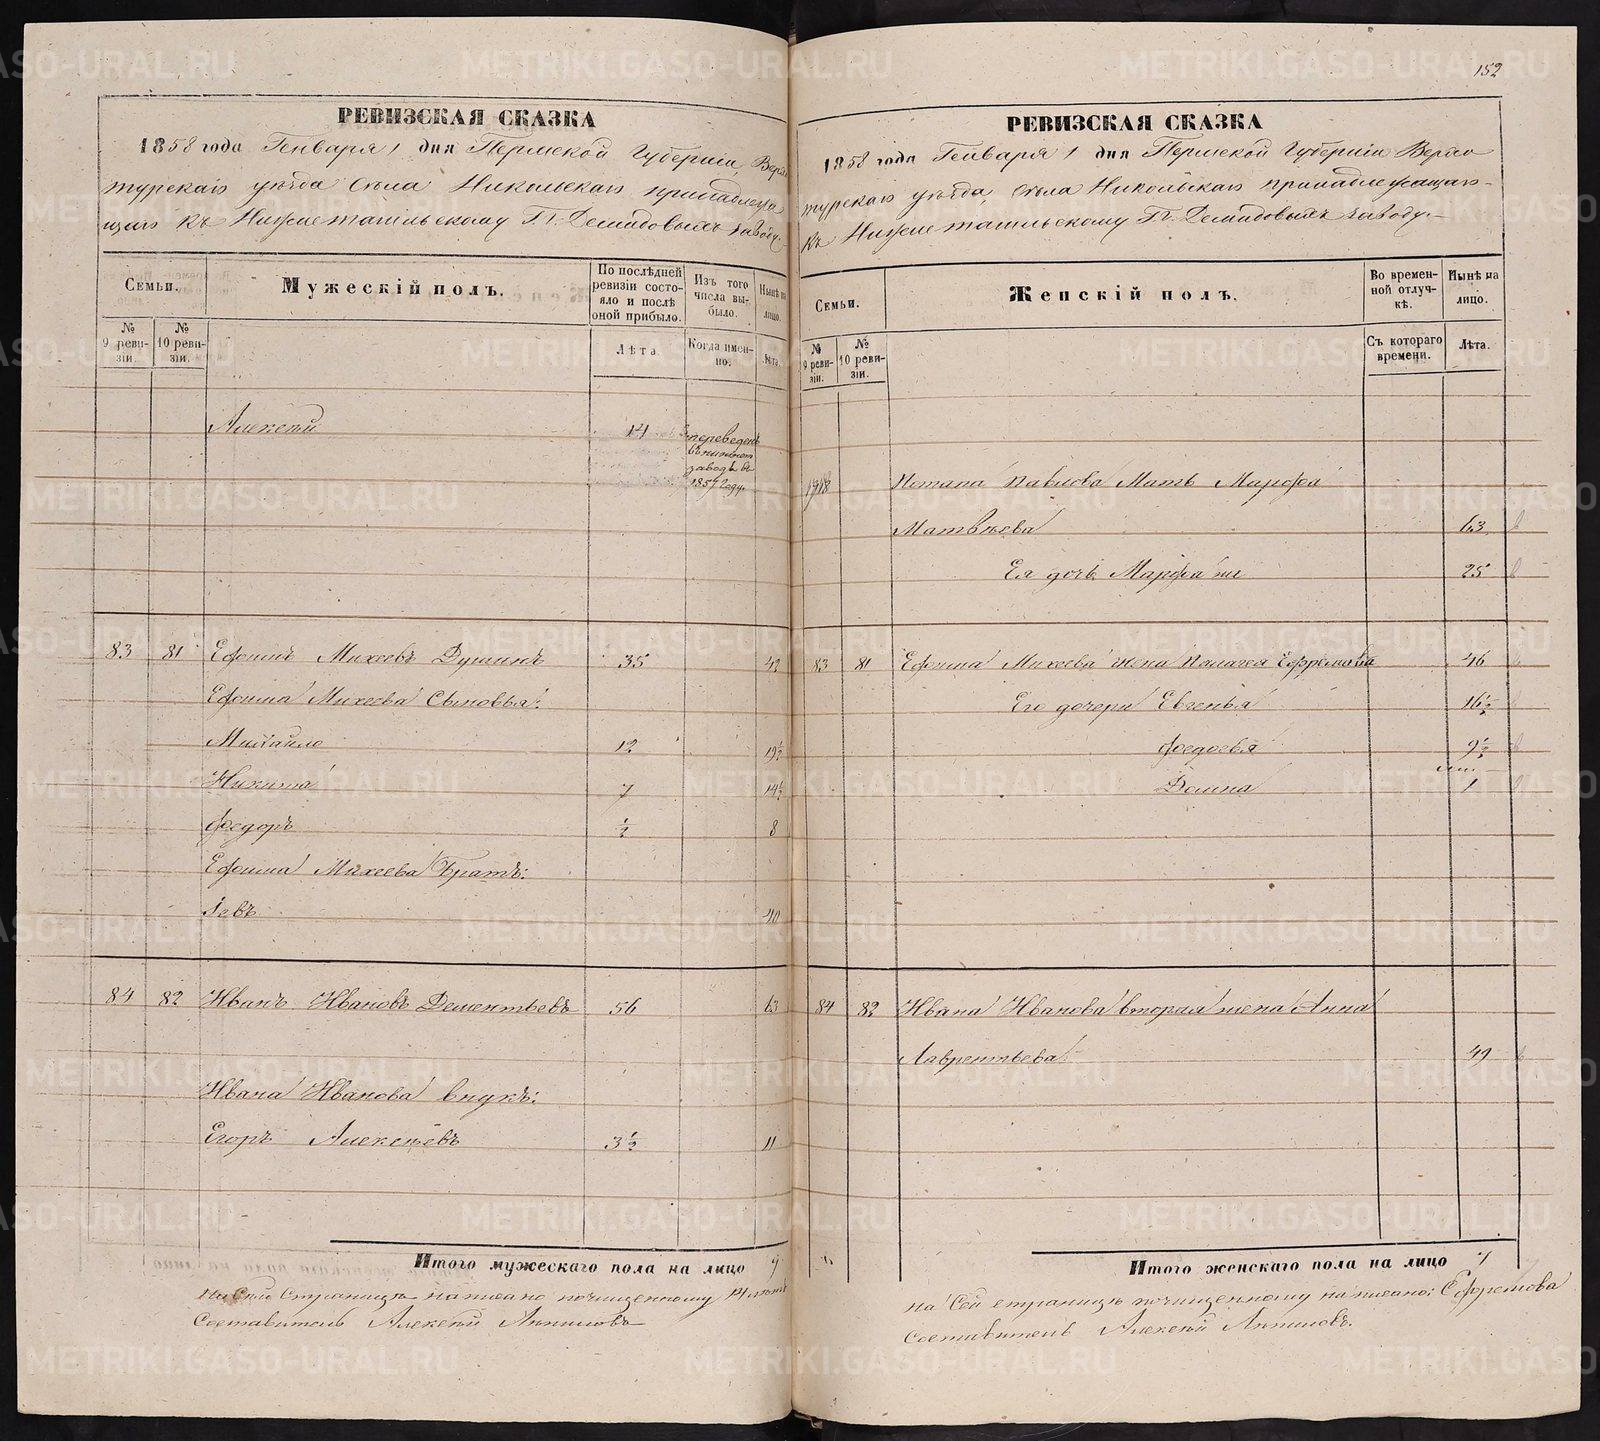 РЕВИЗСКАЯ СКАЗКА
1858 года Генваря 1 дня Пермской Губерніи, Верхо
турскаго уѣзда Села Никольскаго принадлежа
щаго къ Нижнетагильскому Гг. Демидовыхъ заводу.
Семьи.
Мужескій полъ.
По послѣдней ревизіи состояло и послѣ оной прибыло.
Изъ того числа выбыло.
Нынѣ на лицо.
№ 9 ревизіи.
№ 10 ревизіи.
Лѣта.
Когда именно.
Лѣта.
Алексѣй 14 переведенъ
заводъ въ
1857 году.
83 81 Ефимъ Михеевъ 35 42
Ефима Михеева Сыновья:
Михайло 12 19½
Никита 7 14½
Федоръ ½ 8
Ефима Михеева Братъ:
Іевъ 40
84 82 Иванъ Ивановъ Дементьевъ 56 63
Ивана Иванова внукъ:
Егоръ Алексѣевъ 3½ 11
Итого мужескаго пола на лицо 9
на Сей Страницѣ написано почищенному
Составитель Алексѣй Ляпиловъ
152
РЕВИЗСКАЯ СКАЗКА
1858 года Генваря 1 дня Пермской Губерніи Верхо
турскаго уѣзда, Села Никольскаго принадлежащаго
къ Нижнетагильскому Гг. Демидовыхъ заводу.
Семьи.
Женскій полъ.
Во временной отлучкѣ.
Нынѣ на лицо.
№ 9 ревизіи.
№ 10 ревизіи.
Съ котораго времени.
Лѣта.
Потапа Павлова Мать Марфа
Матвѣева 63
Ея дочь Марфа 25
83 81 Ефима Михеева жена Палагея Ефремова 46
Его дочери Евгенья 16½
Федосья 9½
Домна 1
84 82 Ивана Иванова вторая жена Анна
Лаврентьева 49
Итого женскаго пола на лицо 7
на Сей страницѣ почищенному написано: Ефремова
Составитель Алексѣй Ляпиловъ.
METRIKI.GASO-URAL.RU